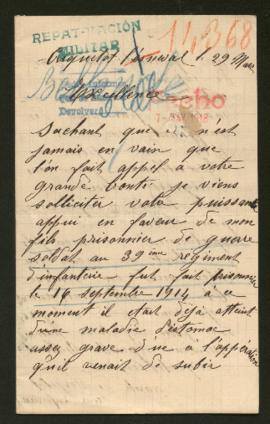 REPATRIACIÓN
MILITAR
11,368
le 29 Mars
Excellence
Devolver
Sachant que ce n'est
jamais en vain que
l'on fait appel à votre
grande bonté je viens
solliciter votre puissant
appui en faveur de mon
fils prisonnier de guerre
soldat au 39ème régiment
d'infanterie fut fait prisonnier
le 16 septembre 1914 à ce
moment il était déjà atteint
d'une maladie d'estomac
assez grave due à l'opération
qu'il venait de subir